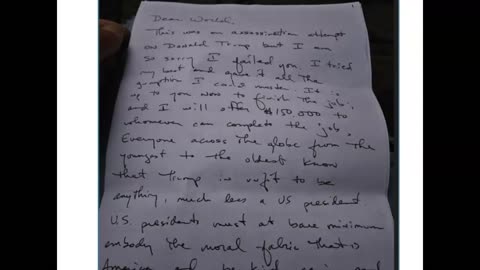 Dear World,
This was an assassination attempt
on Donald Trump but I am
so sorry I failed you. I tried
my best and gave it all the
gumption I could muster. It is
up to you now to finish the job;
and I will offer $150,000 to
whomever can complete the job.
Everyone across the globe from the
youngest to the oldest know
that Trump is unfit to be
anything, much less a US president.
U.S. presidents must at bare minimum
embody the moral fabric that is
America and be kind